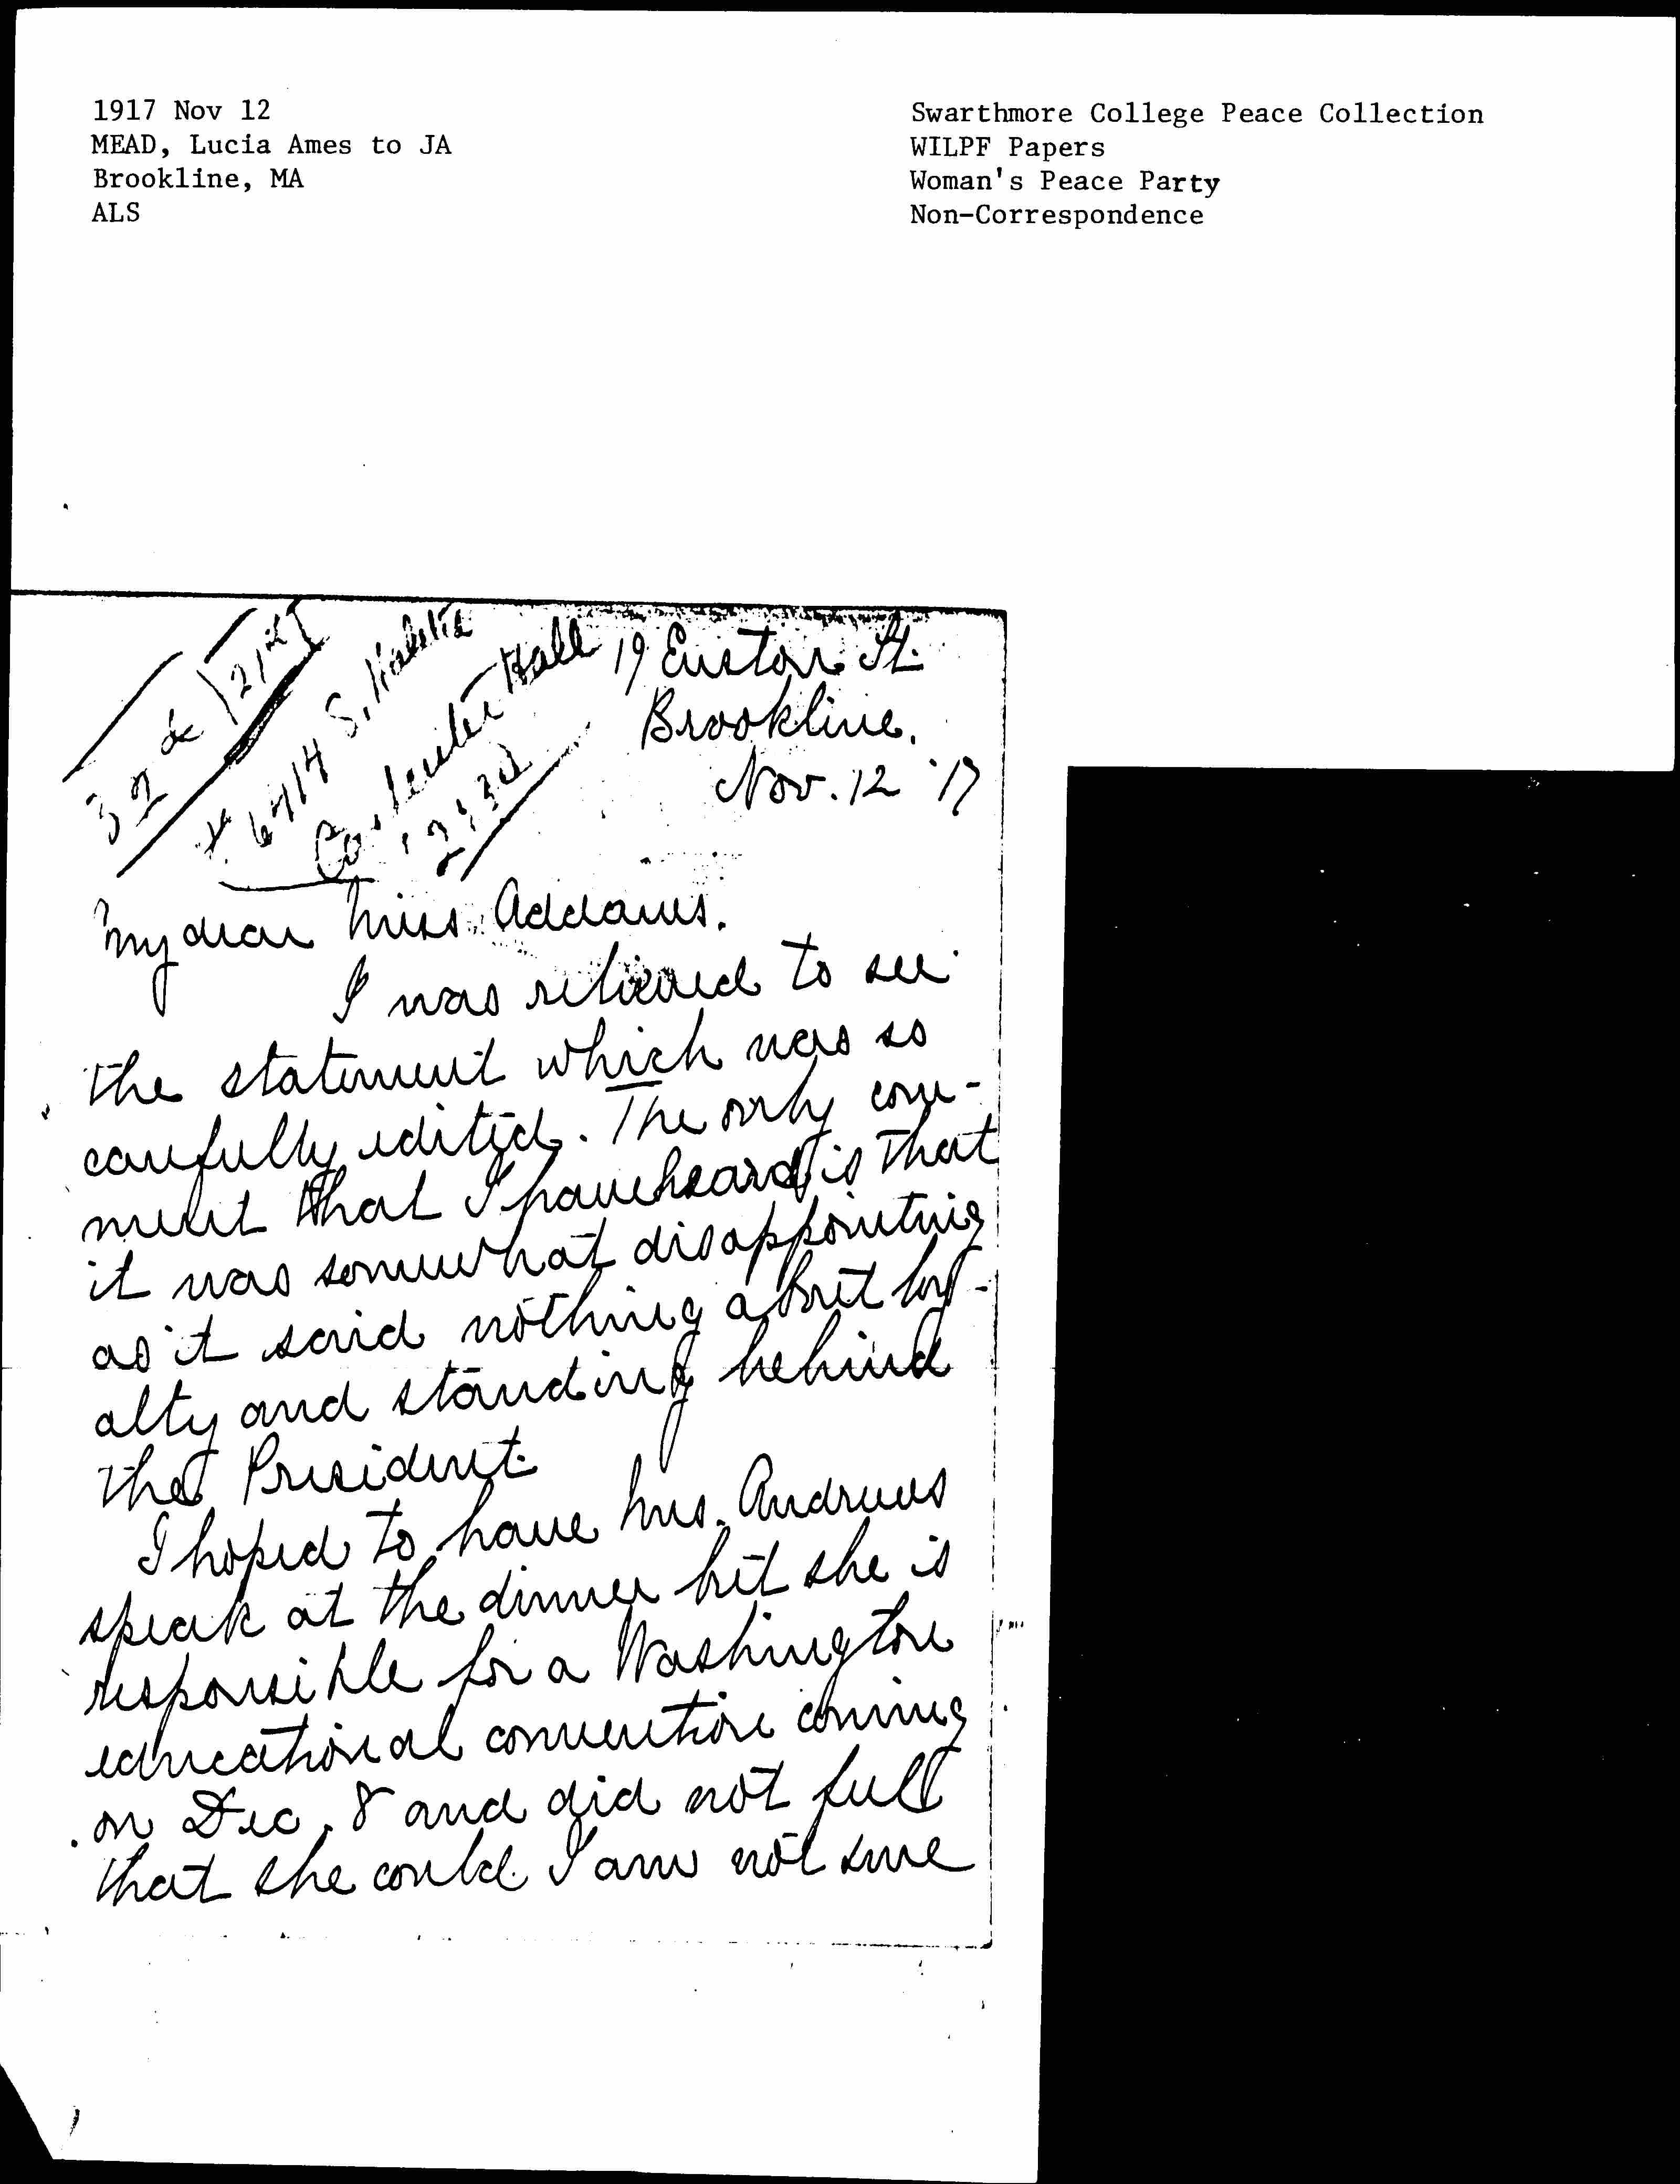 1917 Nov 12
MEAD, Lucia Ames to JA
Brookline, MA
ALS
Swarthmore College Peace Collection
WILPF Papers
Woman's Peace Party
Non-Correspondence
32 & 21st
6414 S. Halsted
Hall
2:30
19 Euston St.
Brookline.
Nov. 12 '17
My dear Miss Addams.
I was relieved to see
the statement which was so
carefully edited. The only com-
ment that I have heard is that
it was somewhat disappointing
as it said nothing about loy-
alty and standing behind
the President.
I hoped to have Mrs. Andrews
speak at the dinner but she is
responsible for a Washington
educational convention coming
on Dec. 8 and did not feel
that she could. I am not sure